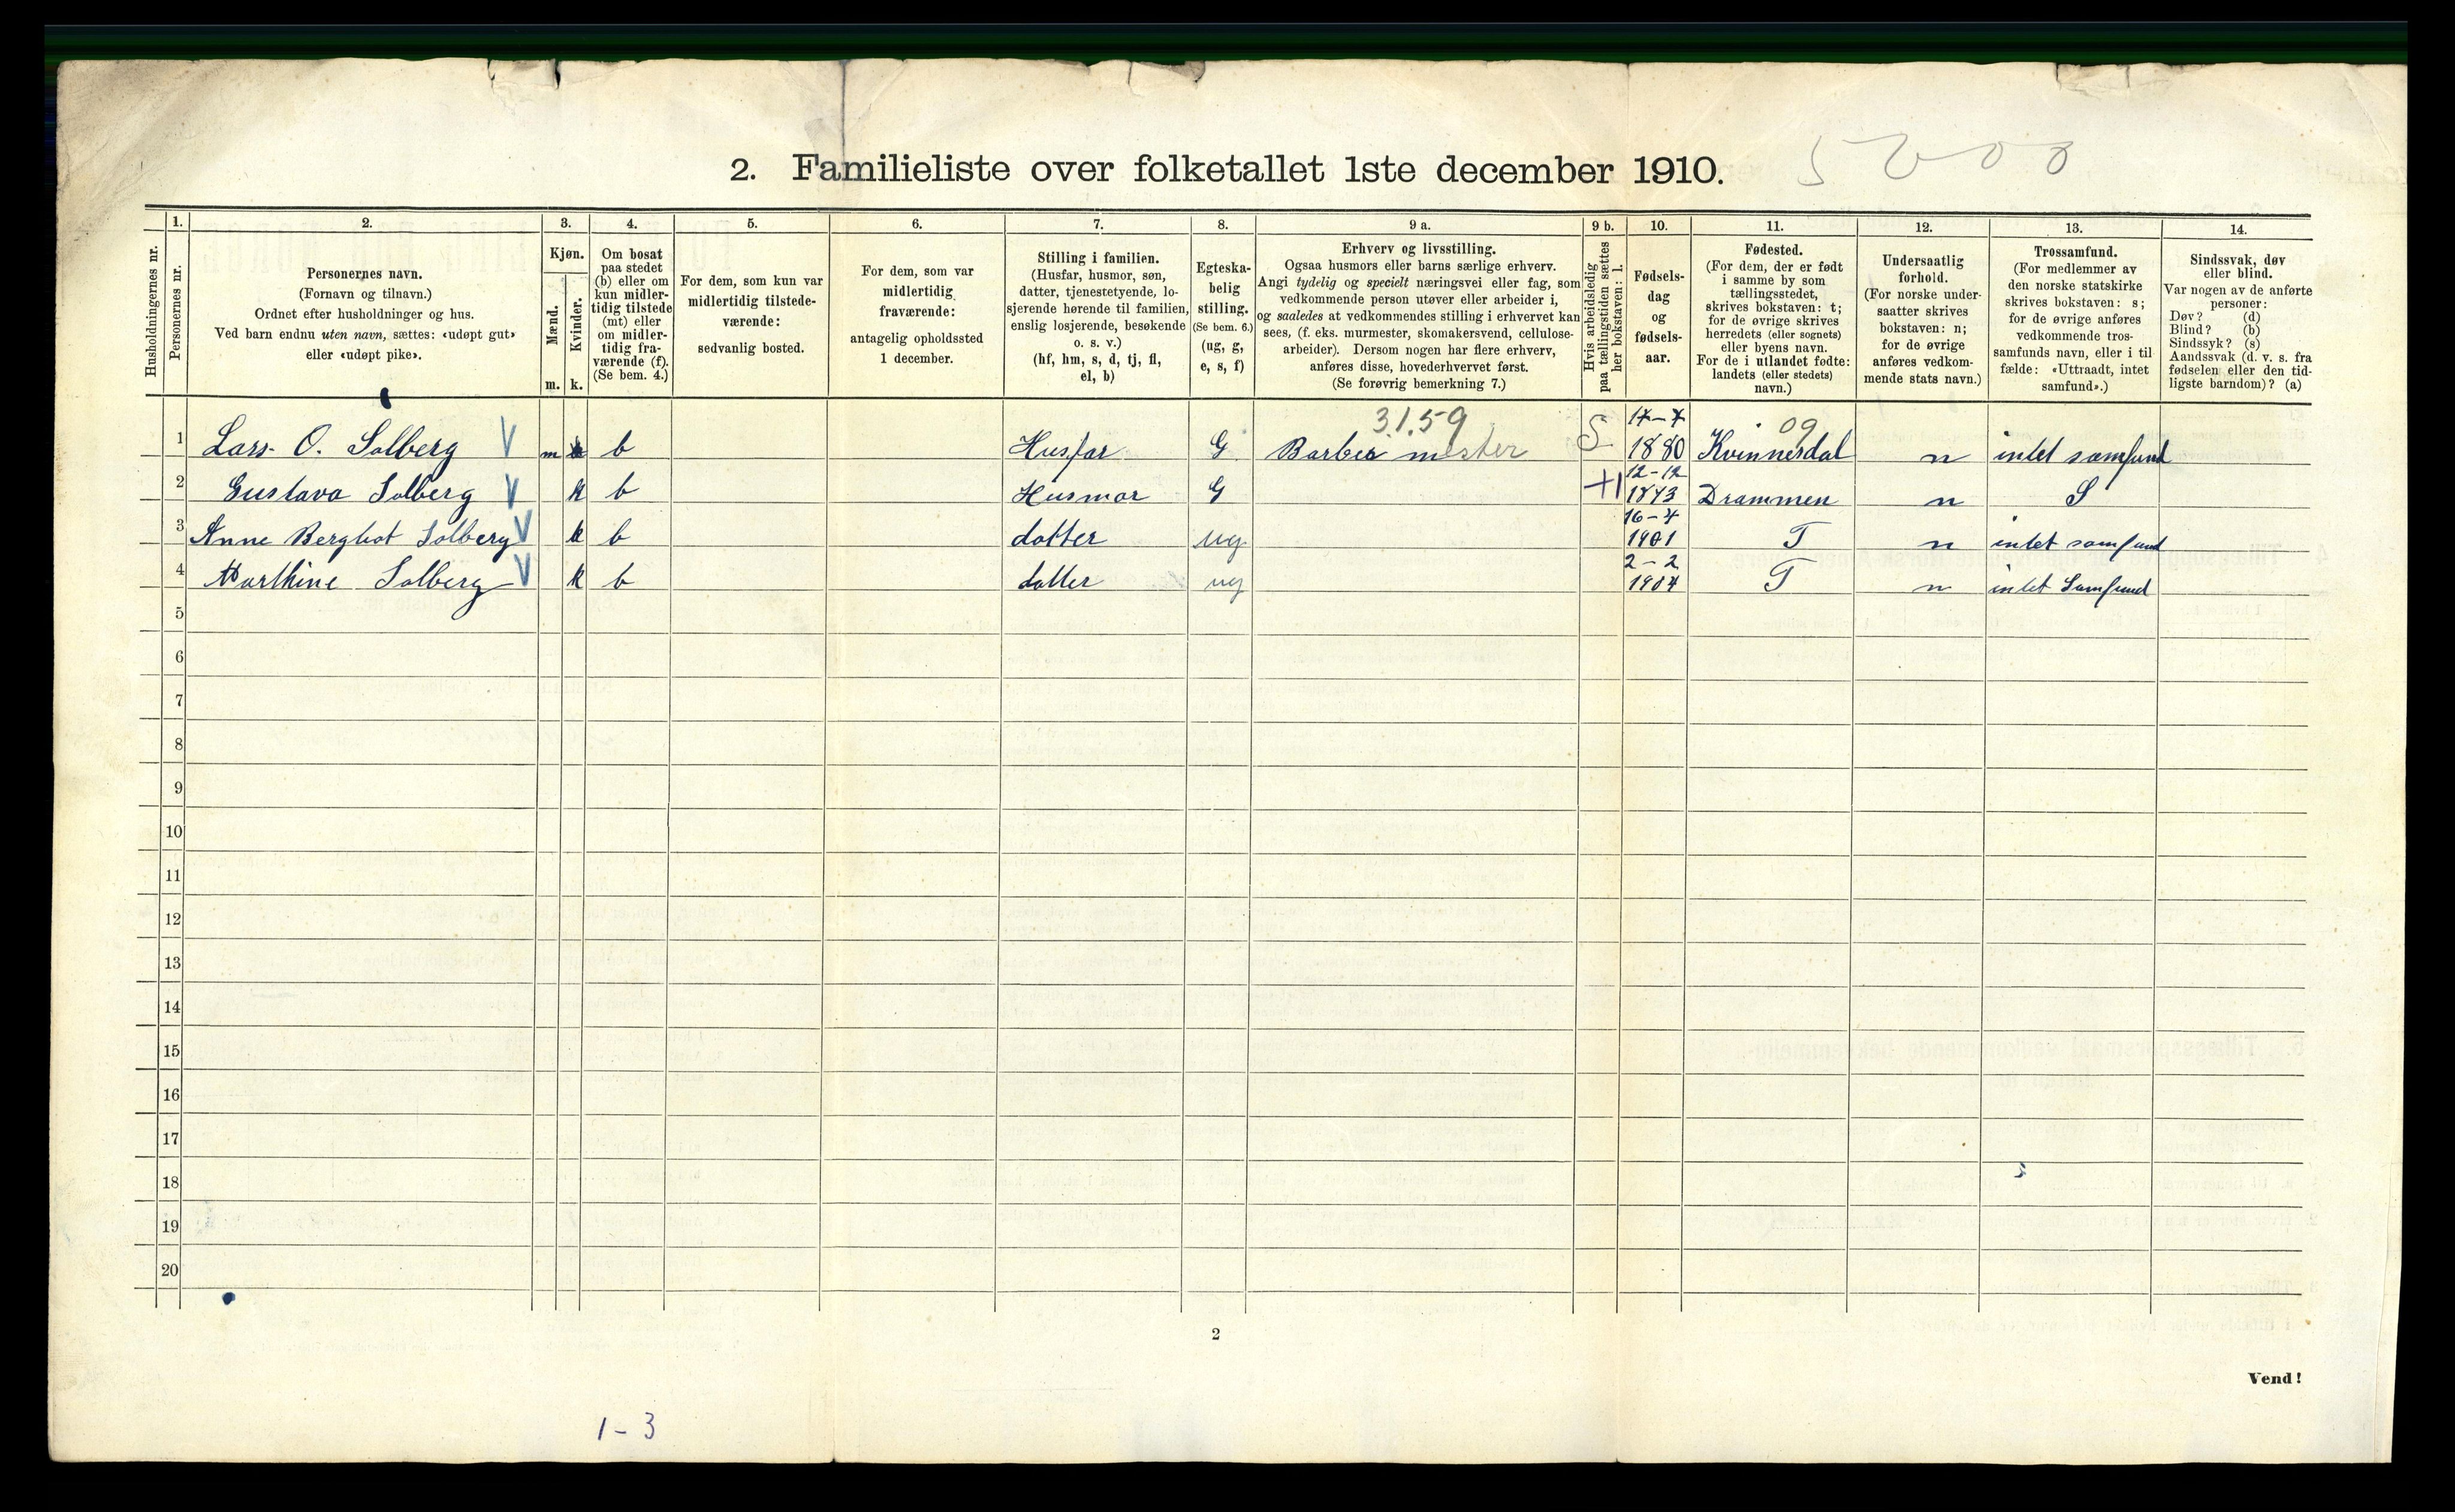 2. Familieliste over folketallet 1ste december 1910.
5200
1. 2. 3. 4. 5. 6. 7. 8. 9 a. 9 b. 10. 11. 12. 13. 14.
Husholdningernes nr.
Personernes nr.
Personernes navn.
(Fornavn og tilnavn.)
Ordnet efter husholdninger og hus.
Ved barn endnu uten navn, sættes: «udøpt gut»
eller «udøpt pike».
Kjøn.
Mænd.
Kvinder.
m. k.
Om bosat
paa stedet
(b) eller om
kun midler-
tidig tilstede
(mt) eller
om midler-
tidig fra-
værende (f).
(Se bem. 4.)
For dem, som kun var
midlertidig tilstede-
værende:
sedvanlig bosted.
For dem, som var
midlertidig
fraværende:
antagelig opholdssted
1 december.
Stilling i familien.
(Husfar, husmor, søn,
datter, tjenestetyende, lo-
sjerende hørende til familien,
enslig losjerende, besøkende
o. s. v.)
(hf, hm, s, d, tj, fl,
el, b)
Egteska-
belig
stilling.
(Se bem. 6.)
(ug, g,
e, s, f)
Erhverv og livsstilling.
Ogsaa husmors eller barns særlige erhverv.
Angi tydelig og specielt næringsvei eller fag, som
vedkommende person utøver eller arbeider i,
og saaledes at vedkommendes stilling i erhvervet kan
sees, (f. eks. murmester, skomakersvend, cellulose-
arbeider). Dersom nogen har flere erhverv,
anføres disse, hovederhvervet først.
(Se forøvrig bemerkning 7.)
Hvis arbeidsledig
paa tællingstiden sættes
her bokstaven: l.
Fødsels-
dag
og
fødsels-
aar.
Fødested.
(For dem, der er født
i samme by som
tællingsstedet,
skrives bokstaven: t;
for de øvrige skrives
herredets (eller sognets)
eller byens navn.
For de i utlandet fødte:
landets (eller stedets)
navn.)
Undersaatlig
forhold.
(For norske under-
saatter skrives
bokstaven: n;
for de øvrige
anføres vedkom-
mende stats navn.)
Trossamfund.
(For medlemmer av
den norske statskirke
skrives bokstaven: s;
for de øvrige anføres
vedkommende tros-
samfunds navn, eller i til
fælde: «Uttraadt, intet
samfund».)
Sindssvak, døv
eller blind.
Var nogen av de anførte
personer:
Døv? (d)
Blind? (b)
Sindssyk? (s)
Aandssvak (d. v. s. fra
fødselen eller den tid-
ligste barndom)? (a)
3.1.59 17-7 09
1 Lars O. Solberg V m b Husfar G Barber mester S 1880 Kvinnesdal n intet samfund
12-12
2 Gustava Solberg V k b Husmor G 1873 Drammen n S
16-4
3 Anne Bergliot Solberg V k b dotter ug 1901 T n intet samfund
2-2
4 Marthine Solberg V k b datter ug 1904 T n intet Samfund
5
6
7
8
9
10
11
12
13
14
15
16
17
18
19
20
2
Vend!
1-3